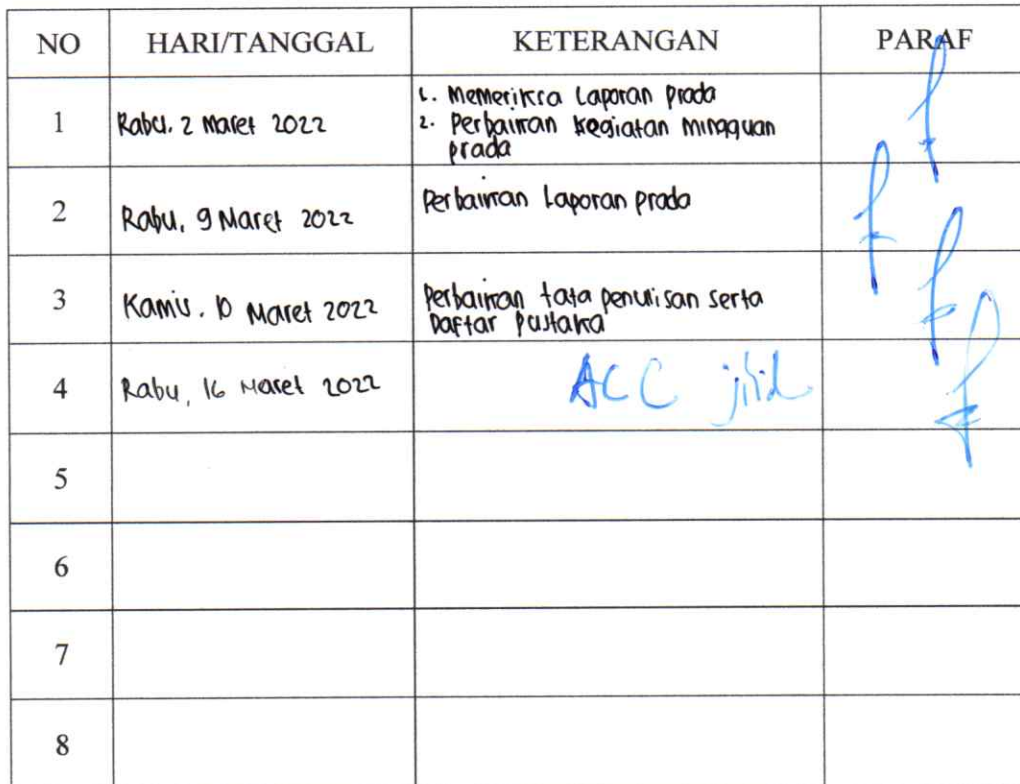 NO HARI/TANGGAL KETERANGAN PARAF
1 Rabu, 2 Maret 2022 1. Memeriksa Laporan prada
2. Perbaikan kegiatan mingguan
prada
2 Rabu, 9 Maret 2022 Perbaikan Laporan prada
3 Kamis, 10 Maret 2022 Perbaikan tata penulisan serta
Daftar Pustaka
4 Rabu, 16 Maret 2022 ACC jilid
5
6
7
8